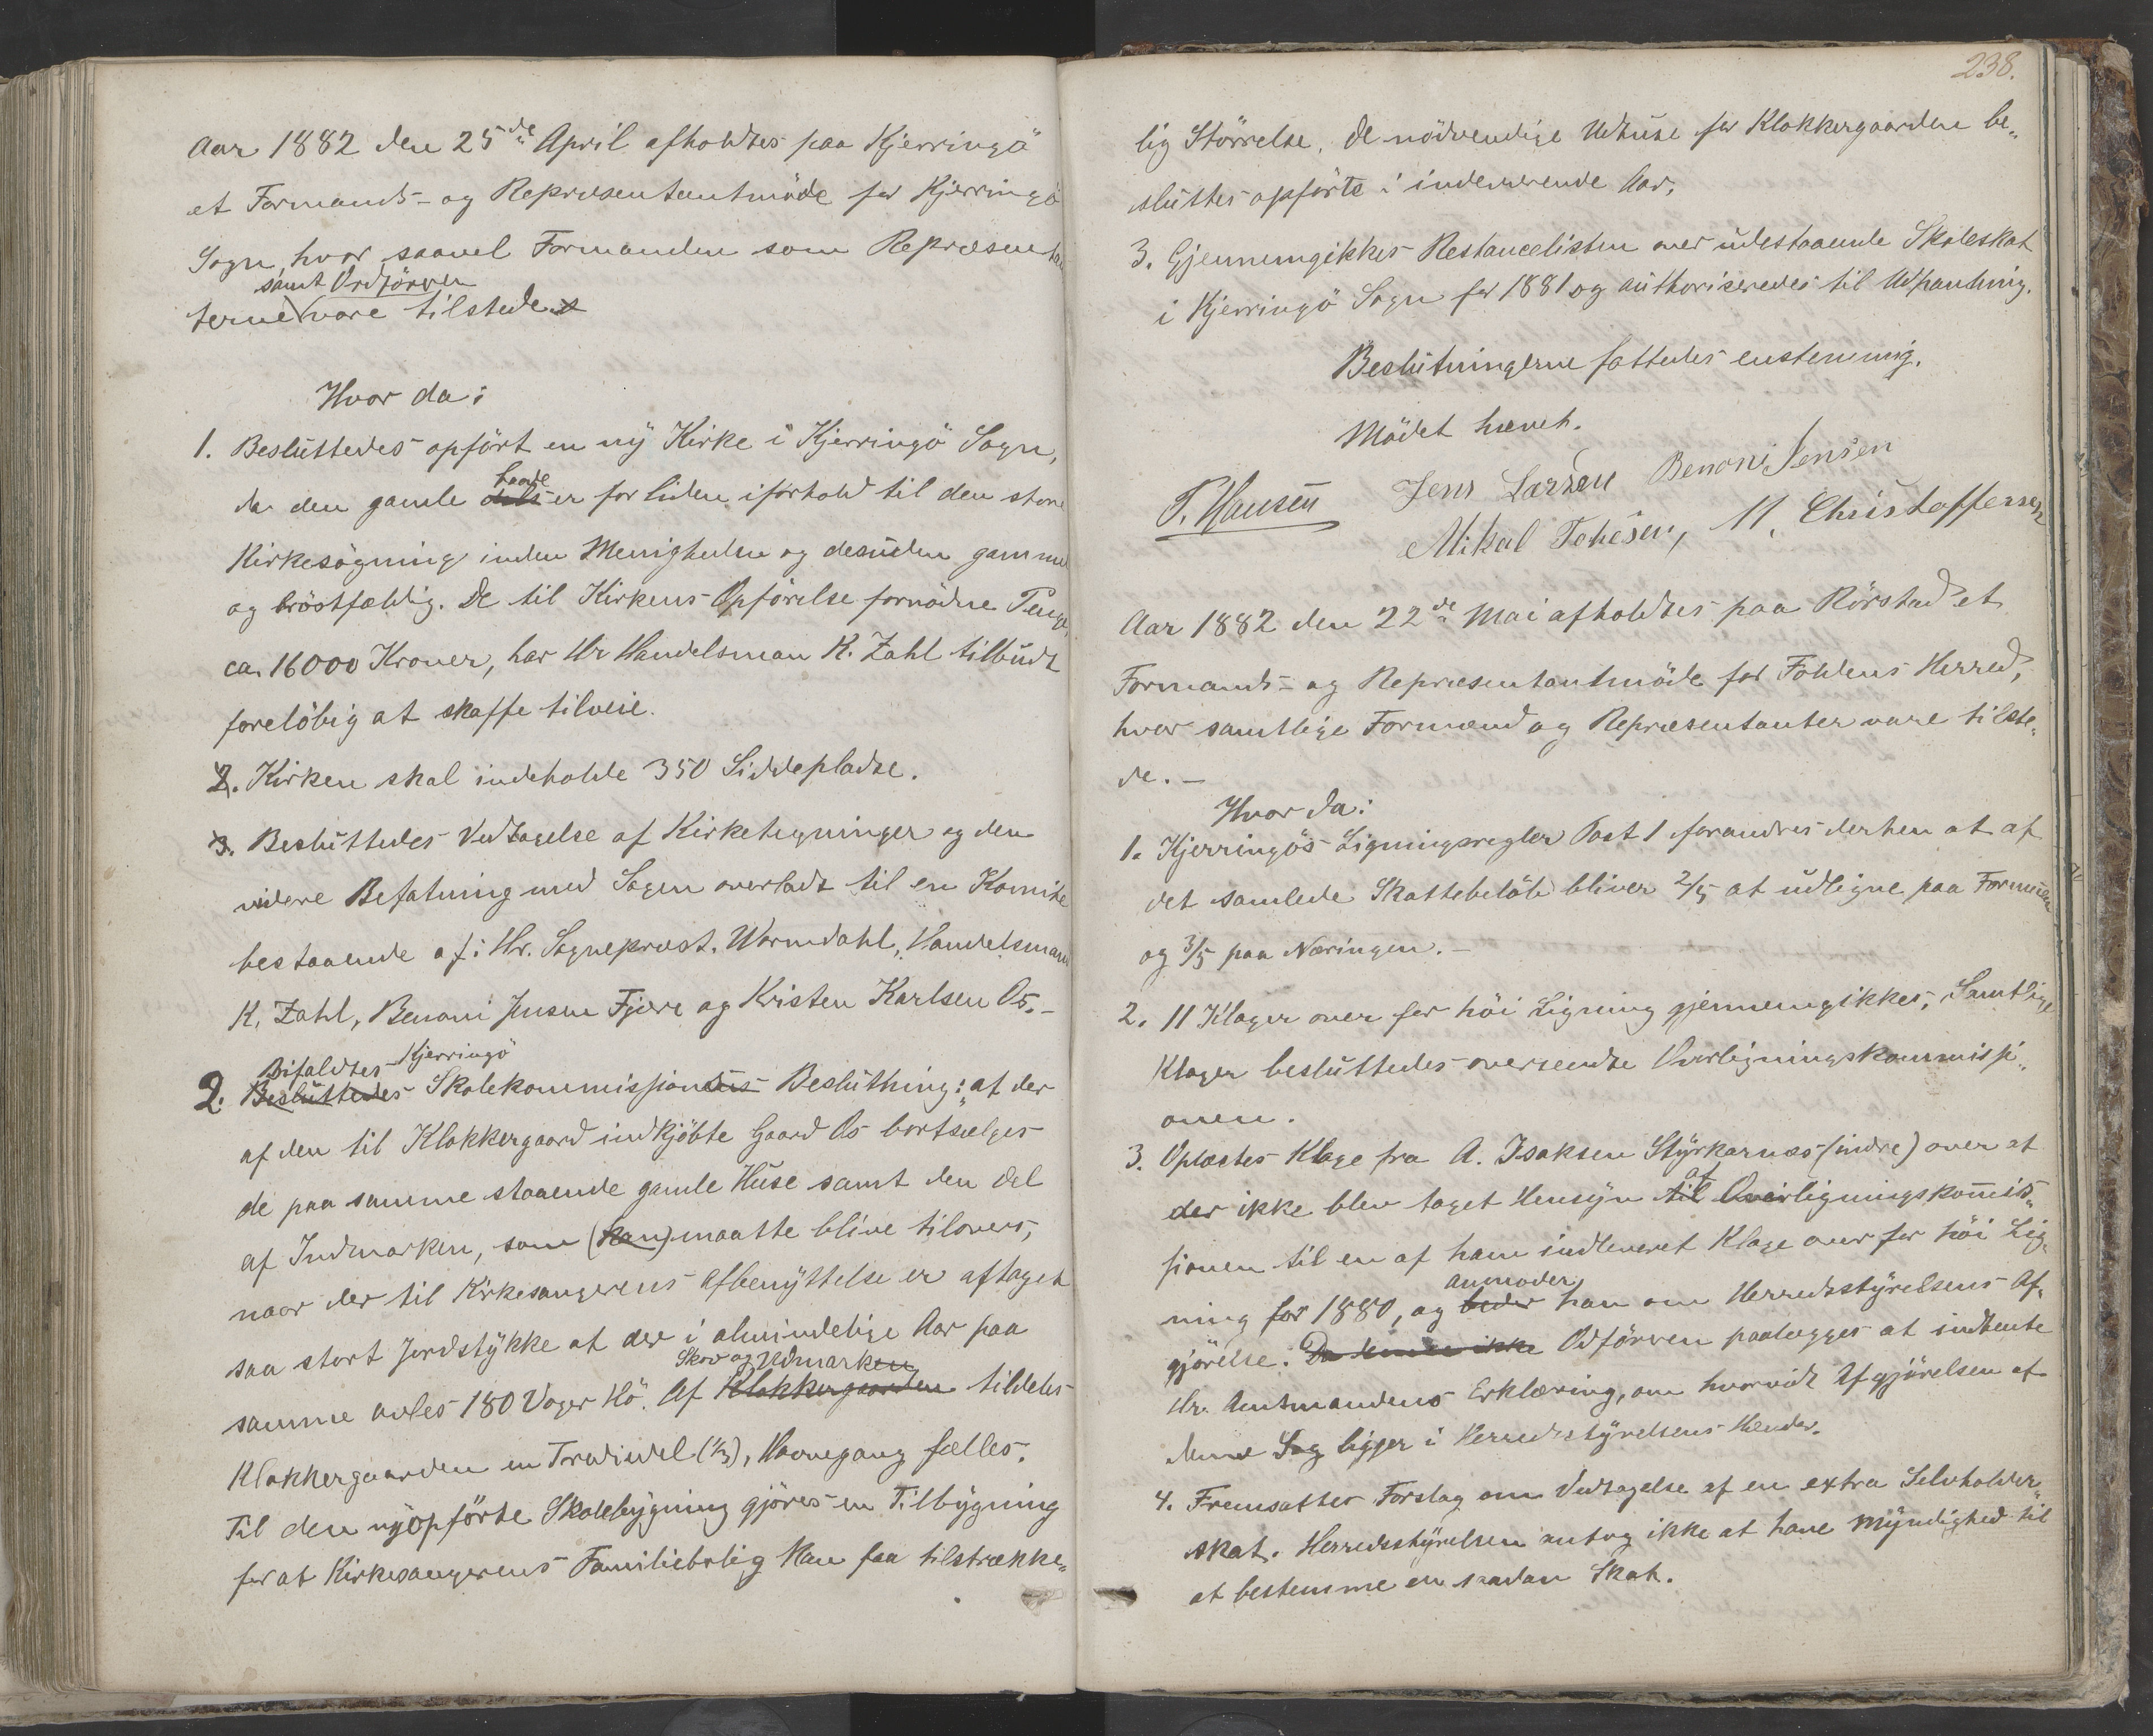 Aar 1882 den 25de April afholdtes paa Kjerringö
et Formands- og Repræsentantmöde for Kjerringö
Sogn, hvor saavel Formanden som Repræsentan
samt Ordföreren
terne vare tilstede
Hvor da:
1. Besluttedes opfört en ny Kirke i Kjerringö Sogn,
baade
da den gamle er for liden iforhold til den store
Kirkesögning inden Menigheden og desuden gammel
og bröstfældig. De til Kirkens Opförelse fornödne Penge,
ca. 16000 Kroner, har Hr Handelsman K. Zahl tilbudt
forelöbig at skaffe tilveie.
2. Kirken skal indeholde 350 Siddepladse.
3. Besluttedes Vedtagelse af Kirketegninger og den
videre Befatning med Sagen overladt til en Komite
bestaaende af: Hr. Sogneprest. Warmdahl, Handelsmand
K. Zahl, Benoni Jensen Fjære og Kristen Karlsen Os.-
Bifaldtes Kjerringö
2. Besluttedes Skolekommissionens Beslutning: "at der
af den til Klokkergaard indkjöbte Gaard Os bortsælges
de paa samme staaende gamle Huse samt den Del
af Indmarken, som (kan) maatte blive tilovers,
naar der til Kirkesangerens Afbenyttelse er aftaget
saa stort Jordstykke at der i almindelige Aar paa
Skov og Udmarken
samme avles 180 Voger Hö. Af Klokkergaarden tildeles
Klokkergaarden en Trediedel (1/3), Havnegang fælles.
Til den nyopförte Skolebygning gjöres en Tilbygning
for at Kirkesangerens Familiebolig kan faa tilstrække-
238.
lig Störrelse. De nödvendige Udhuse for Klokkergaarden be-
sluttes opförte i indeværende Aar,
3. Gjennemgikkes Restancelisten over udestaaende Skoleskat
i Kjerringö Sogn for 1881 og authoriseredes til Udpantning.
Beslutningerne fattedes enstemmig.
Mödet hævet.
T. Hansen Jens Larsen Benoni Jensen
Mikal Tobesen, M. Christoffersen
Aar 1882 den 22de Mai afholdtes paa Rörstad et
Formands- og Repræsentantmöde for Foldens Herred,
hvor samtlige Formænd og Repræsentanter vare tilste-
de. -
Hvor da:
1. Kjerringös Ligningsregler Post 1 forandres derhen at af
det samlede Skattebelöb bliver 2/5 at udligne paa Formuen
og 3/5 paa Næringen. -
2. 11 Klager over for höi Ligning gjennemgikkes, Samtlige
Klager besluttedes oversendte Overligningskommissi-
onen.
3. Oplæstes Klage fra A. Isaksen Styrkarnæs (indre) over at
af
der ikke blev taget Hensyn til Overligningskomis-
sionen til en af ham indleveret Klage over for höi Lig-
anmoder
ning for 1880, og beder han om Herredsstyrelsens Af-
gjörelse. Da kunde ikke Odförren paalægges at indhente
Hr. Amtmandens Erklæring, om hvorvidt Afgjörelsen af
denne Sag ligger i Herredsstyrelsens Hænder.
4. Fremsattes Forslag om Vedtagelse af en extra Selvholder-
skat. Herredsstyrelsen antog ikke at have Myndighed til
at bestemme en saadan Skat.